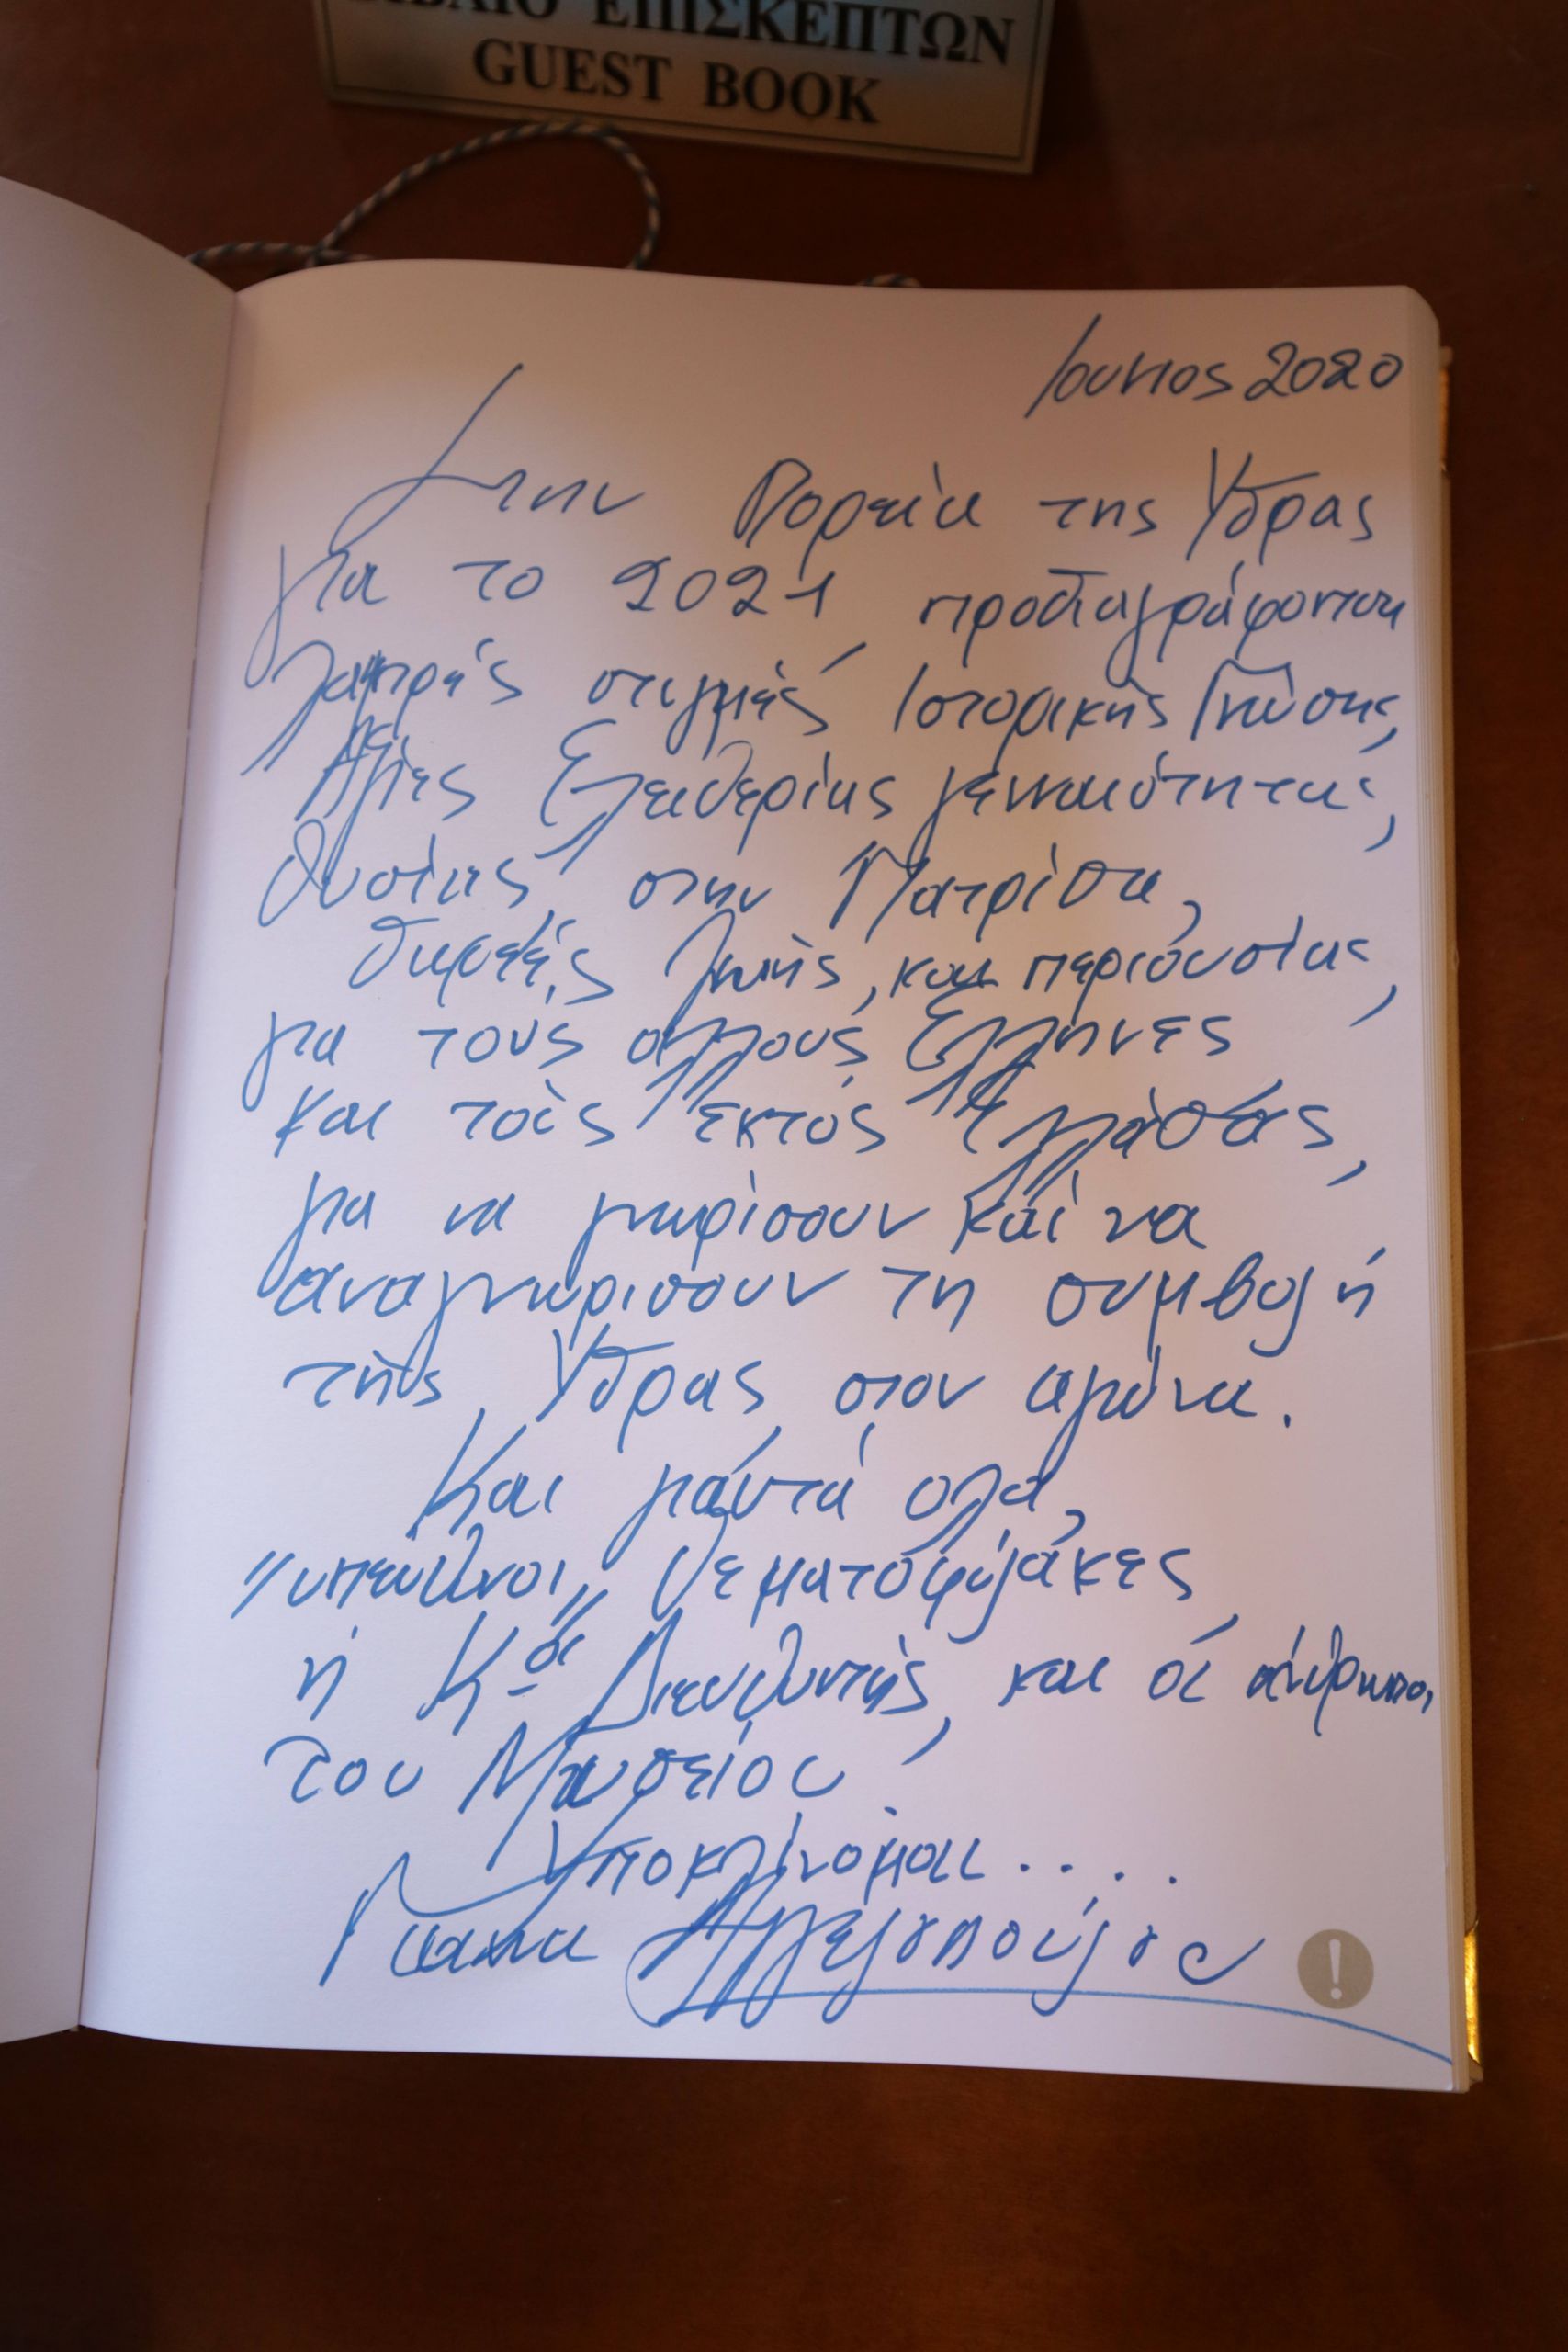 ΒΙΒΛΙΟ ΕΠΙΣΚΕΠΤΩΝ
GUEST BOOK
Ιουνιος 2020
Στην Πορεία της Υδρας
για το 2021, προδιαγράφονται
λαμπρές στιγμές Ιστορικής Γνώσης,
Αξίες Ελευθερίας γενναιότητας,
θυσίας στην Πατρίδα,
δωρεές ζωής, και περιουσίας,
για τούς άλλους Έλληνες
και τούς εκτός Ελλάδας,
για να γνωρίσουν καί να
αναγνωρισουν τη συμβολή
τής Υδρας στον αγώνα.
Και γι αυτά ολα,
"υπευθυνοι" θεματοφύλακες
ή Κα Διευθυντής, και οί άνθρωποι
του Μουσείου.
Υποκλίνομαι....
Γιαννα Αγγελοπούλου
!